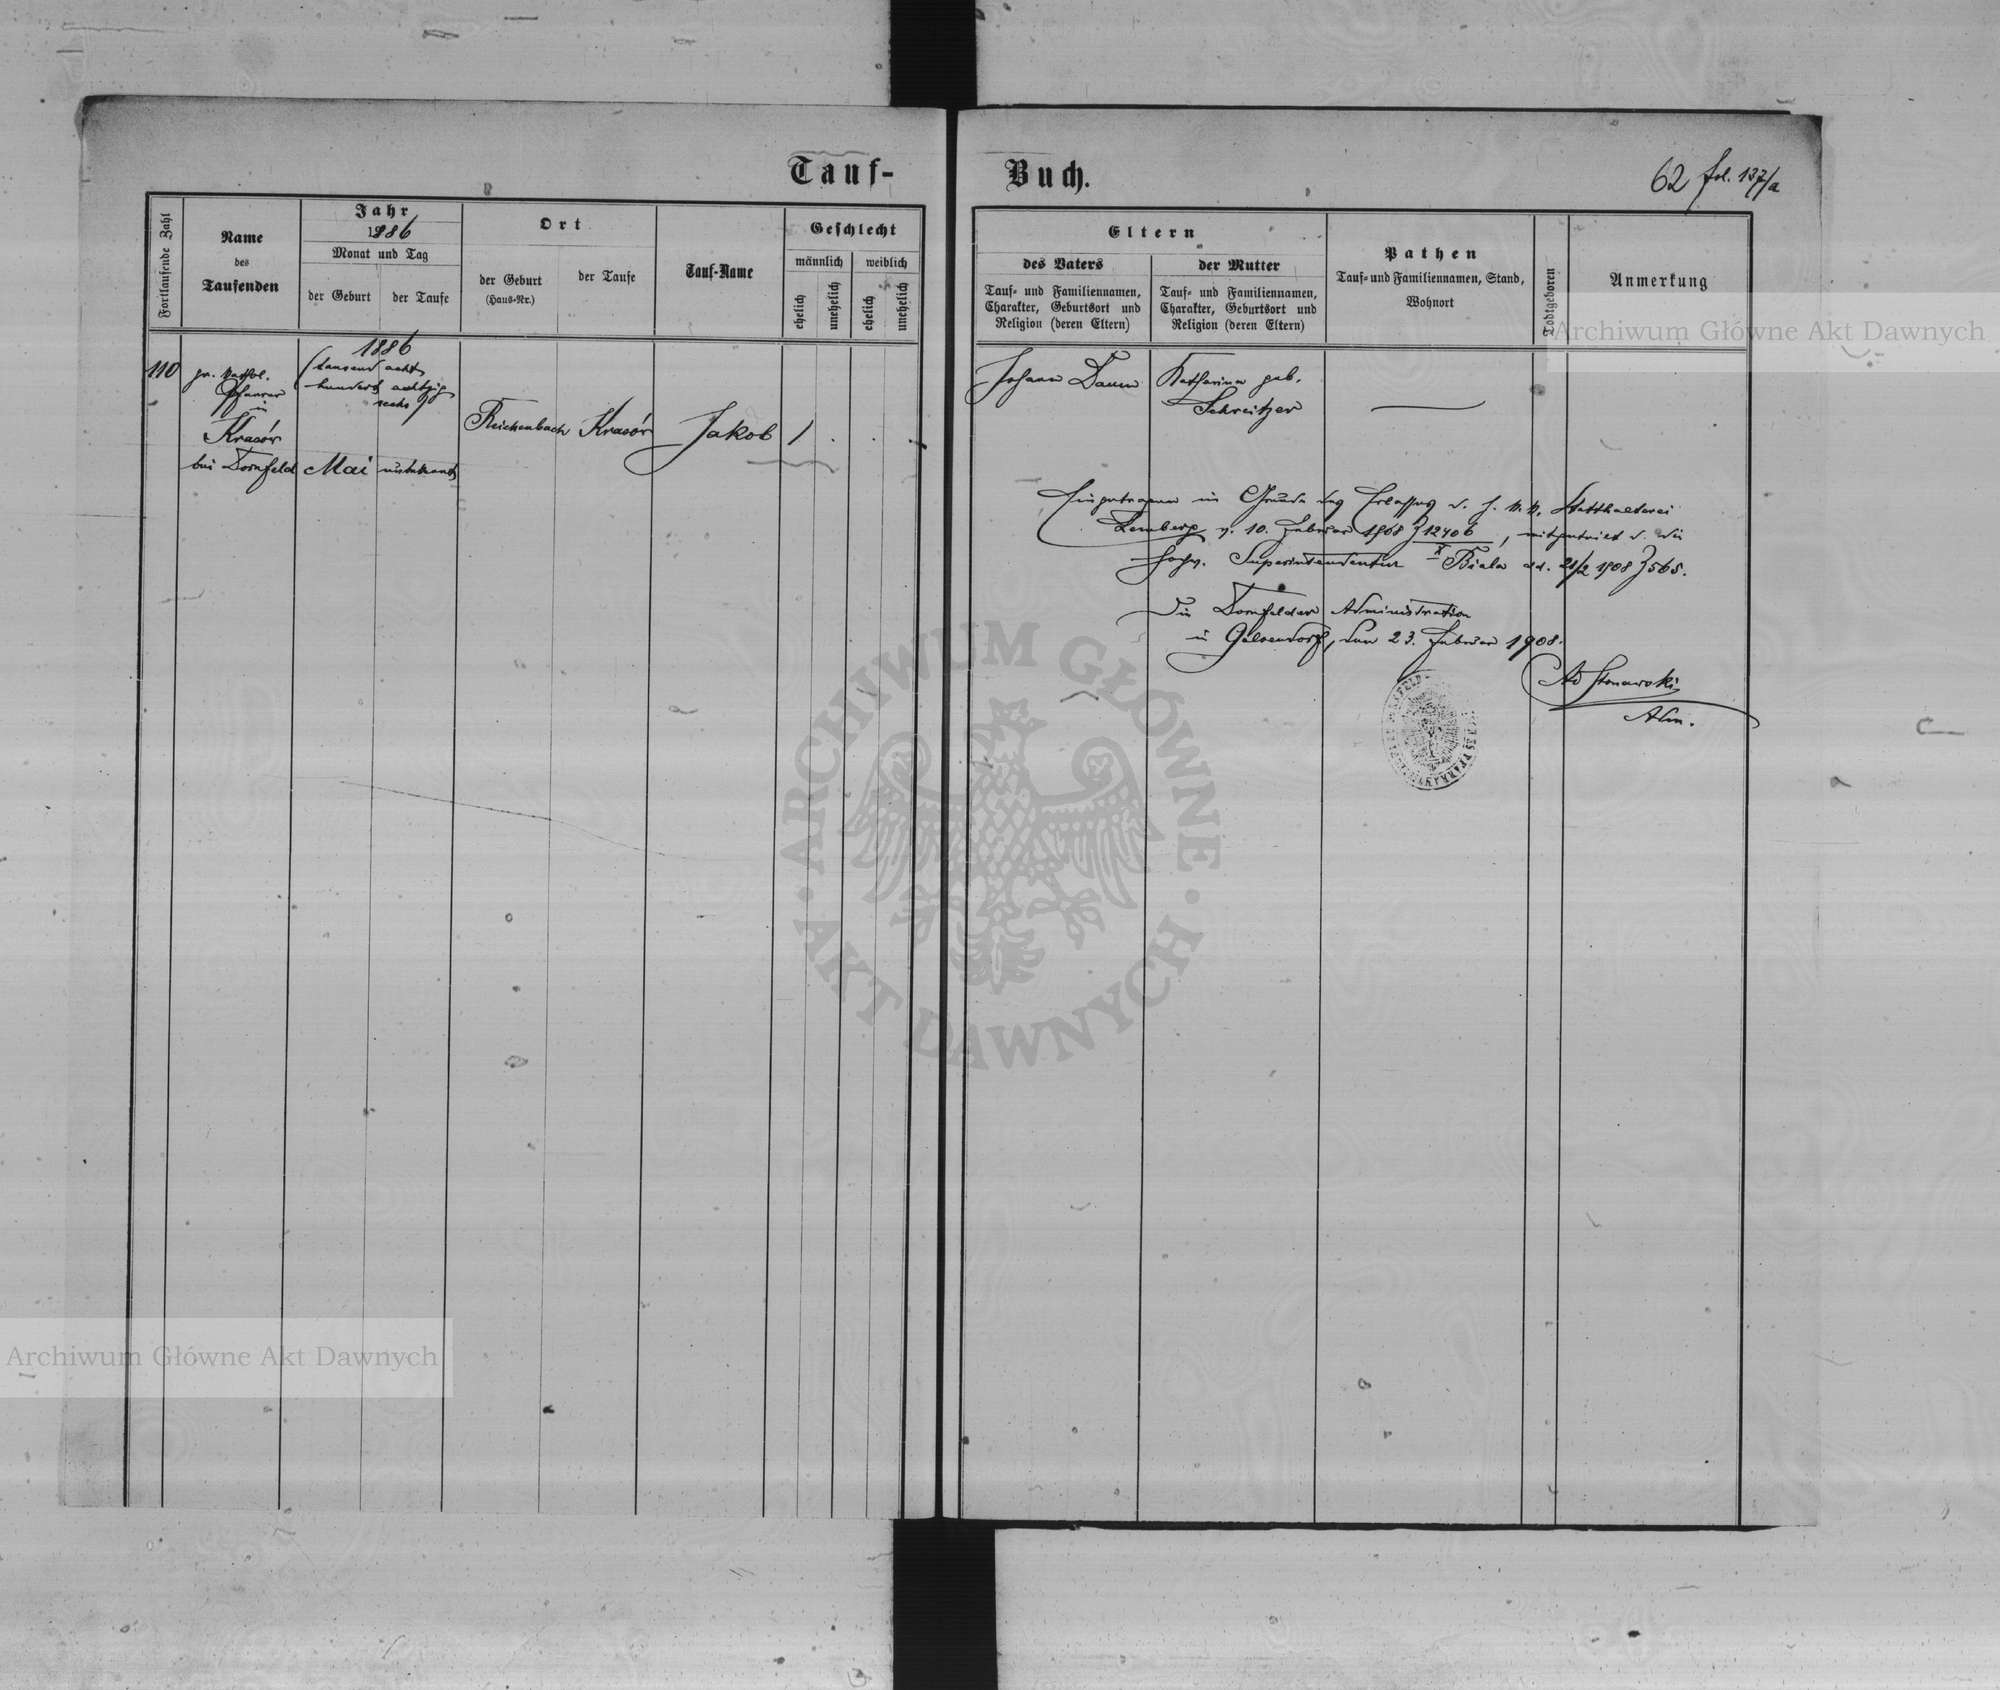 Tauf-
Buch.
62 fol. 137/a
Fortlaufende Zahl
Name
des
Taufenden
Jahr
1886
Monat und Tag
der Geburt
der Taufe
Ort
der Geburt
(Haus-Nr.)
der Taufe
Tauf-Name
Geschlecht
männlich
weiblich
ehelich
unehelich
ehelich
unehelich
Eltern
des Vaters
Tauf- und Familiennamen,
Charakter, Geburtsort und
Religion (deren Eltern)
der Mutter
Tauf- und Familiennamen,
Charakter, Geburtsort und
Religion (deren Eltern)
Pathen
Tauf- und Familiennamen, Stand,
Wohnort
Todtgeboren
Anmerkung
110
gr. kathol.
Pfarrer
in
Krasów
bei Dornfeld
1886
(tausend acht
hundert achtzig
sechs)
Mai
unbekannt
Reichenbach
Krasów
Jakob
1
Johann Daum
Katharina geb.
Schreitzer
Eingetragen im Grunde des Erlasses d. h. k. k. Statthalterei
Lemberg v. 10. Februar 1908 Z 12406/X, mitgeteilt d. die
hochw. Superintendentur Biala dd. 21/2 1908 Z 565.
Die Dornfelder Administration
in Gelsendorf, den 23. Februar 1908.
Ad Stonawski
Adm.
Archiwum Główne Akt Dawnych
ARCHIWUM GŁÓWNE
AKT DAWNYCH
Archiwum Główne Akt Dawnych